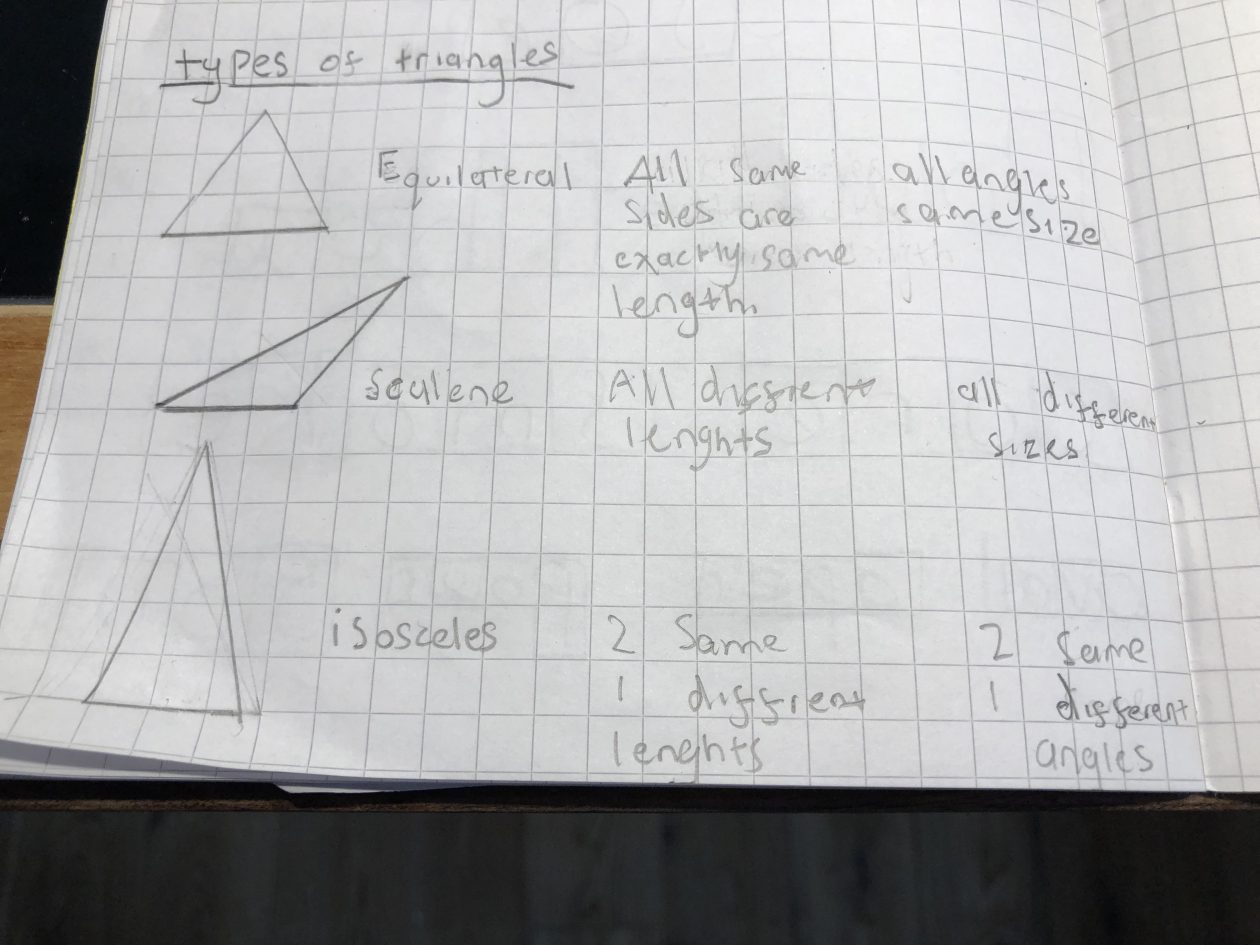 types of triangles
Equilateral
All same
sides are
exactly same
length.
all angles
same size
Scalene
All diffrent
lenghts
all different
sizes
isosceles
2 Same
1 diffrent
lenghts
2 same
1 different
angles